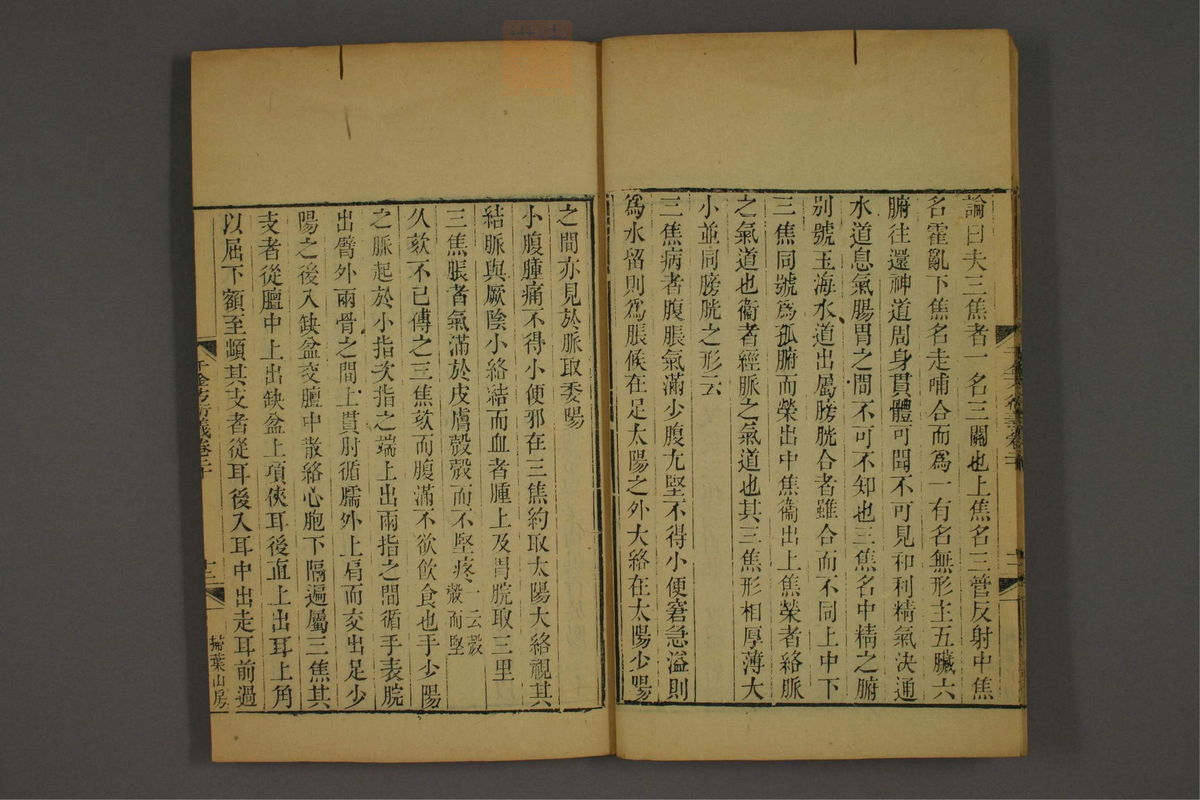 論曰夫三焦者一名三關也上焦名三管反射中焦
名霍亂下焦名走哺合而爲一有名無形主五臟六
腑往還神道周身貫體可聞不可見和利精氣決通
水道息氣腸胃之間不可不知也三焦名中精之腑
別號玉海水道出屬膀胱合者雖合而不同上中下
三焦同號爲孤腑而榮出中焦衞出上焦榮者絡脈
之氣道也衞者經脈之氣道也其三焦形相厚薄大
小並同膀胱之形云
三焦病者腹脹氣滿少腹尤堅不得小便窘急溢則
爲水留則爲脹候在足太陽之外大絡在太陽少陽
之間亦見於脈取委陽
小腹腫痛不得小便邪在三焦約取太陽大絡視其
結脈與厥陰小絡結而血者腫上及胃脘取三里
三焦脹者氣滿於皮膚殼殼而不堅疼一云殼
殼而堅
久欬不已傳之三焦欬而腹滿不欲飲食也手少陽
之脈起於小指次指之端上出兩指之間循手表腕
出臂外兩骨之間上貫肘循臑外上肩而交出足少
陽之後入缺盆交膻中散絡心胞下隔遍屬三焦其
支者從膻中上出缺盆上項俠耳後直上出耳上角
以屈下額至䪼其支者從耳後入耳中出走耳前過
千金方衍義卷二十
十二
掃葉山房